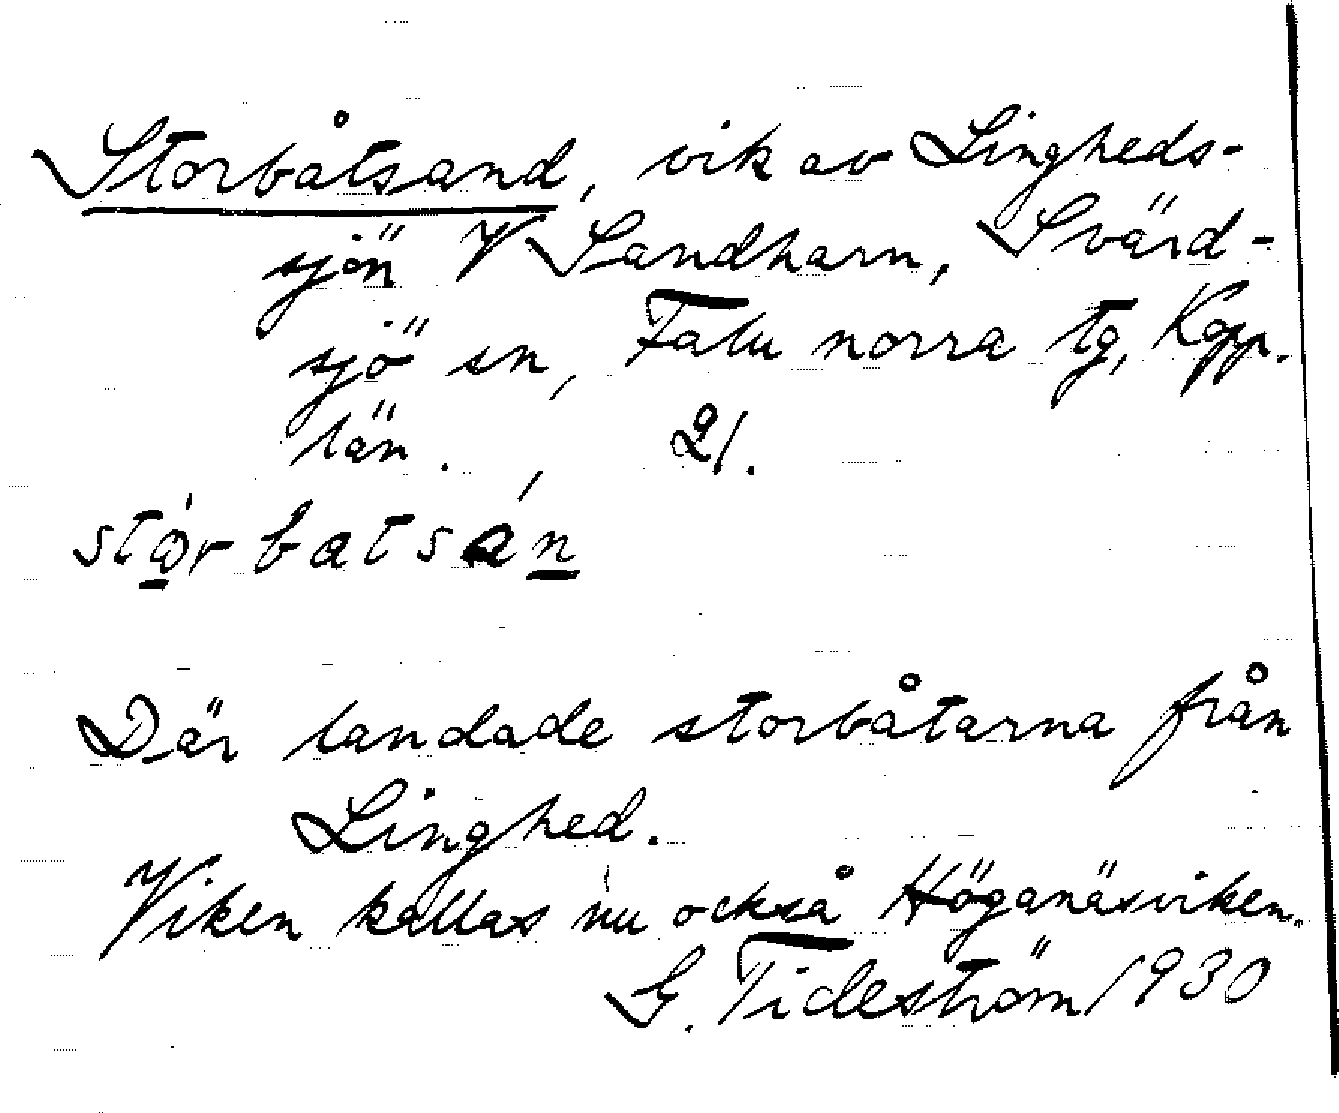 Storbåtsand, vik av Lingheds-
sjön V Sandharn, Svärd-
sjö sn, Falu norra tg, Kopp.
län. 21.
stòrbatsán
Där landade storbåtarna från
Linghed.
Viken kallas nu också Höganäsviken.
G. Tideström 1930